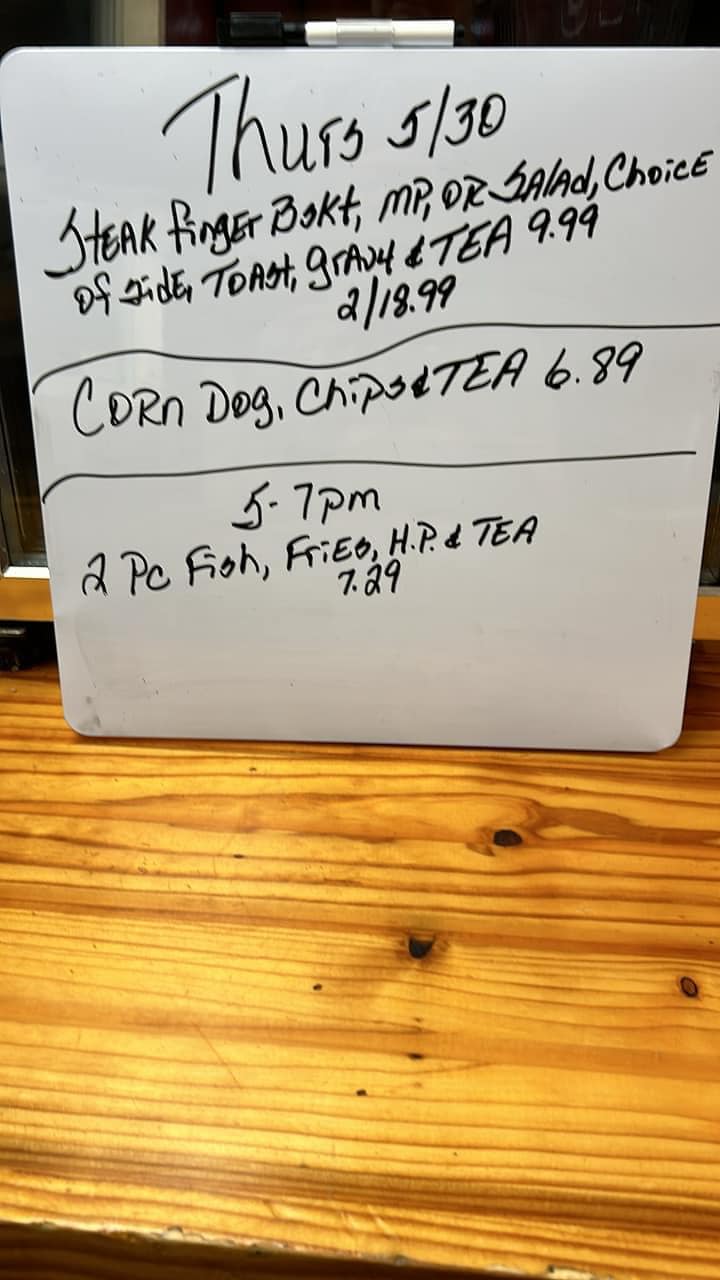 Thurs 5/30
STEAK finger BSKt, MP, OR SAlAd, ChoicE
Of sidE, TOASt, grAvy & TEA 9.99
2/18.99
CORn Dog, Chips & TEA 6.89
5-7pm
2 Pc Fish, FriEs, H.P. & TEA
7.29